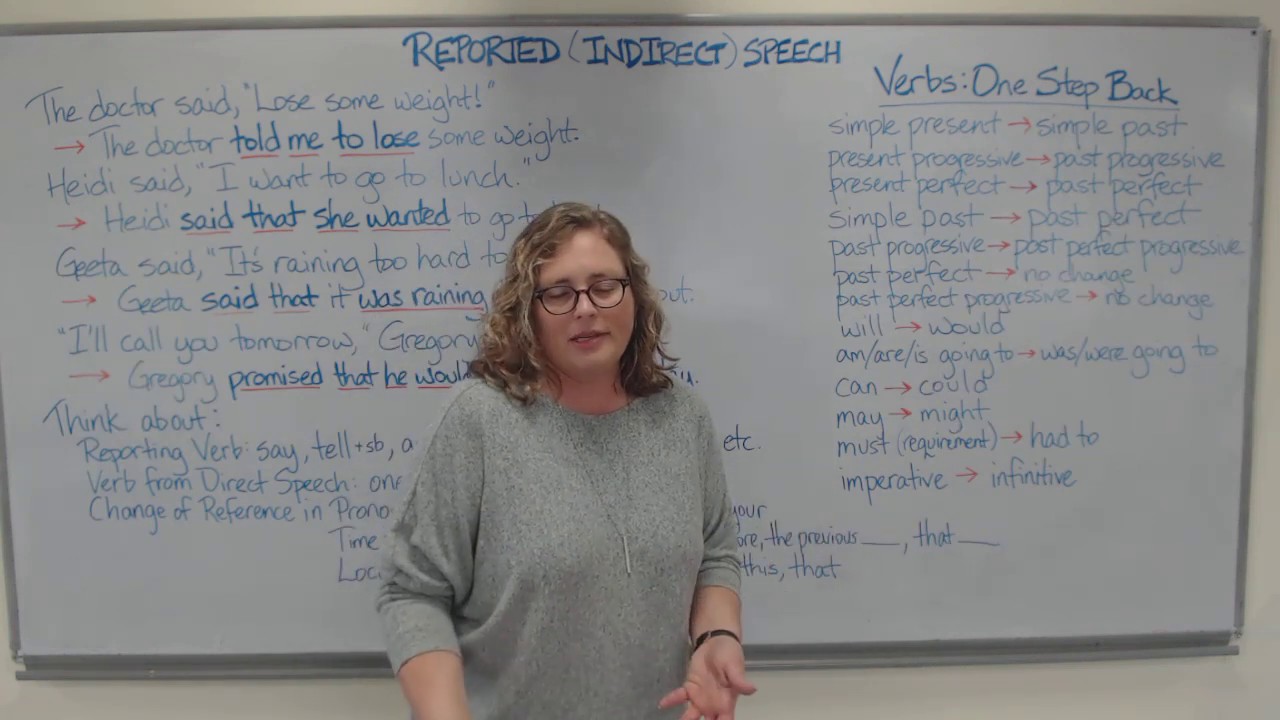 REPORTED (INDIRECT) SPEECH
The doctor said, "Lose some weight!"
→ The doctor told me to lose some weight.
Heidi said, "I want to go to lunch."
→ Heidi said that she wanted to go to
Geeta said, "It's raining too hard to
→ Geeta said that it was raining out.
"I'll call you tomorrow," Gregory
→ Gregory promised that he would
Think about:
Reporting Verb: say, tell+sb, a etc.
Verb from Direct Speech: one
Change of Reference in Prono your
Time ore, the previous ___, that ___
Loc this, that
Verbs: One Step Back
simple present → simple past
present progressive → past progressive
present perfect → past perfect
simple past → past perfect
past progressive → past perfect progressive
past perfect → no change
past perfect progressive → no change
will → would
am/are/is going to → was/were going to
can → could
may → might
must (requirement) → had to
imperative → infinitive